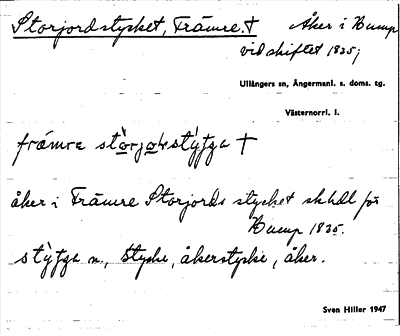 Storjordstycket, Främre. † Åker i Bump
vid skiftet 1825;
Ullångers sn, Ångermanl. s. doms. tg.
Västernorrl. l.
frámre stòrjoḷstýʃʒa †
åker i Främre Storjords stycket skddl för
Bump 1825.
stỳʃʒa n., stycke, åkerstycke, åker.
Sven Hiller 1947